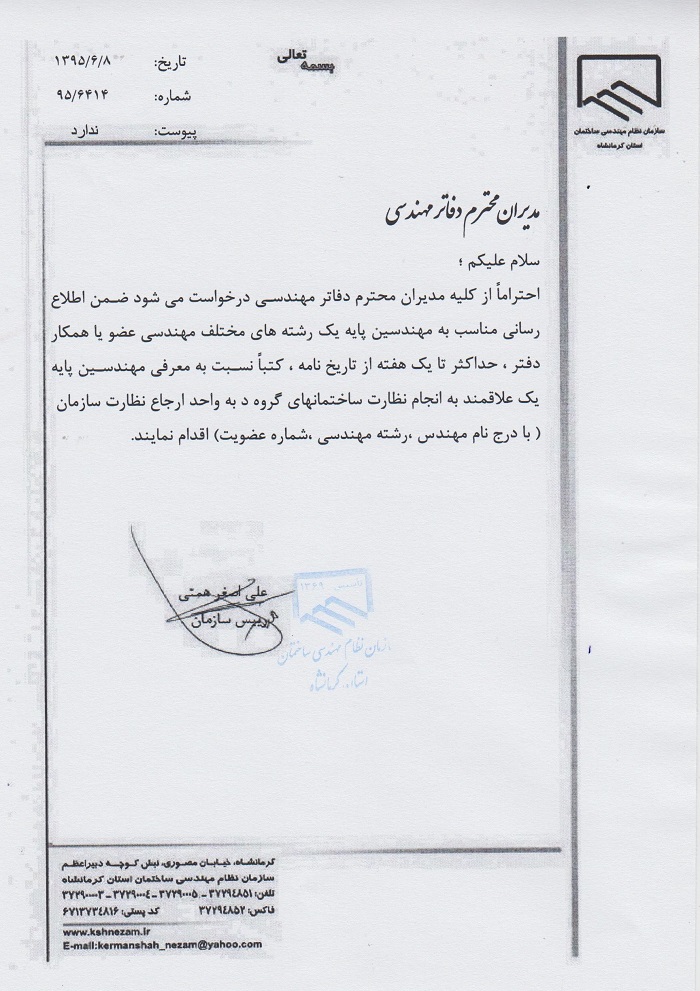 بسمه تعالی
تاریخ: ۱۳۹۵/۶/۸
شماره: ۹۵/۶۴۱۴
پیوست: ندارد
سازمان نظام مهندسی ساختمان
استان کرمانشاه
مدیران محترم دفاتر مهندسی
سلام علیکم ؛
احتراماً از کلیه مدیران محترم دفاتر مهندسی درخواست می شود ضمن اطلاع
رسانی مناسب به مهندسین پایه یک رشته های مختلف مهندسی عضو یا همکار
دفتر ، حداکثر تا یک هفته از تاریخ نامه ، کتباً نسبت به معرفی مهندسین پایه
یک علاقمند به انجام نظارت ساختمانهای گروه د به واحد ارجاع نظارت سازمان
( با درج نام مهندس ،رشته مهندسی ،شماره عضویت) اقدام نمایند.
علی اصغر همتی
رییس سازمان
تاسیس ۱۳۶۹
سازمان نظام مهندسی ساختمان
استان کرمانشاه
کرمانشاه، خیابان مصوری، نبش کوچه دبیراعظم
سازمان نظام مهندسی ساختمان استان کرمانشاه
تلفن: ۳۷۲۹۴۸۵۱ - ۳۷۲۹۰۰۰۵ - ۳۷۲۹۰۰۰۴ - ۳۷۲۹۰۰۰۳
فاکس: ۳۷۲۹۴۸۵۲ کد پستی: ۶۷۱۳۷۳۴۸۱۶
www.kshnezam.ir
E-mail:kermanshah_nezam@yahoo.com